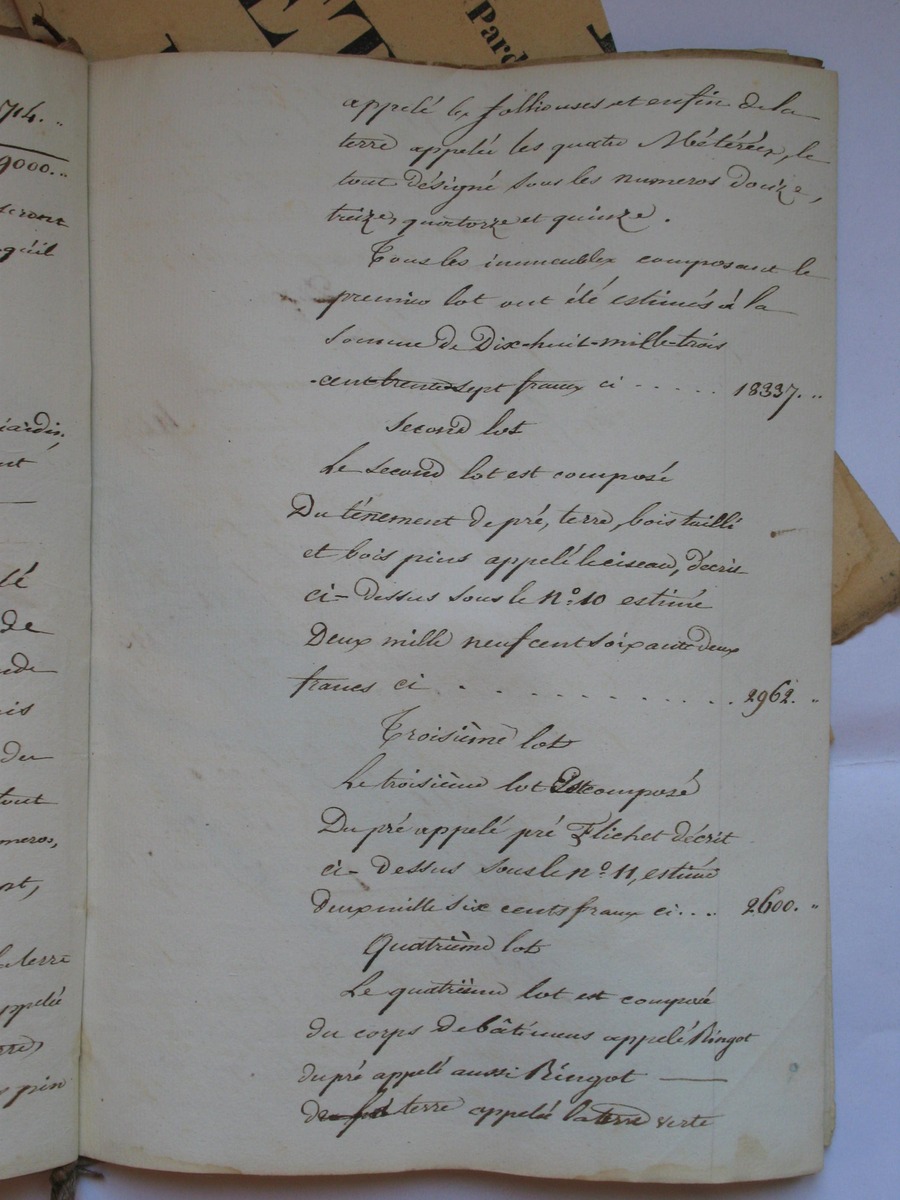 ET
Pard
714. "
9000. "
seront
qu'il
jardin,
ant
lé
de
nde
uis
du
tout
meros,
ort,
la terre
appelée
terre,
s pin
appelé les follieuses et enfin de la
terre appelée les quatre Métérées, le
tout désigné sous les numeros douze,
treize, quatorze et quinze.
Tous les immeubles composant le
premier lot ont été estimés à la
somme de Dix-huit-mille-trois
cent trente sept francs ci ..... 18337. "
Second lot
Le second lot est composé
Du ténement de pré, terre, bois taillé
et bois pins appelé le ciseau, décrit
ci-dessus sous le N.º 10 estimé
Deux mille neuf cent soixante deux
francs ci . . . . . . . . . . 2962. "
Troisième lot
Le troisième lot Est composé
Du pré appelé pré Flichet décrit
ci-dessus sous le n.º 11, estimé
deux mille six cents francs ci... 2600. "
Quatrième lot
Le quatrième lot est composé
du corps de bâtimens appelé Ringot
du pré appelé aussi Ringot —
de terre appelée la terre verte